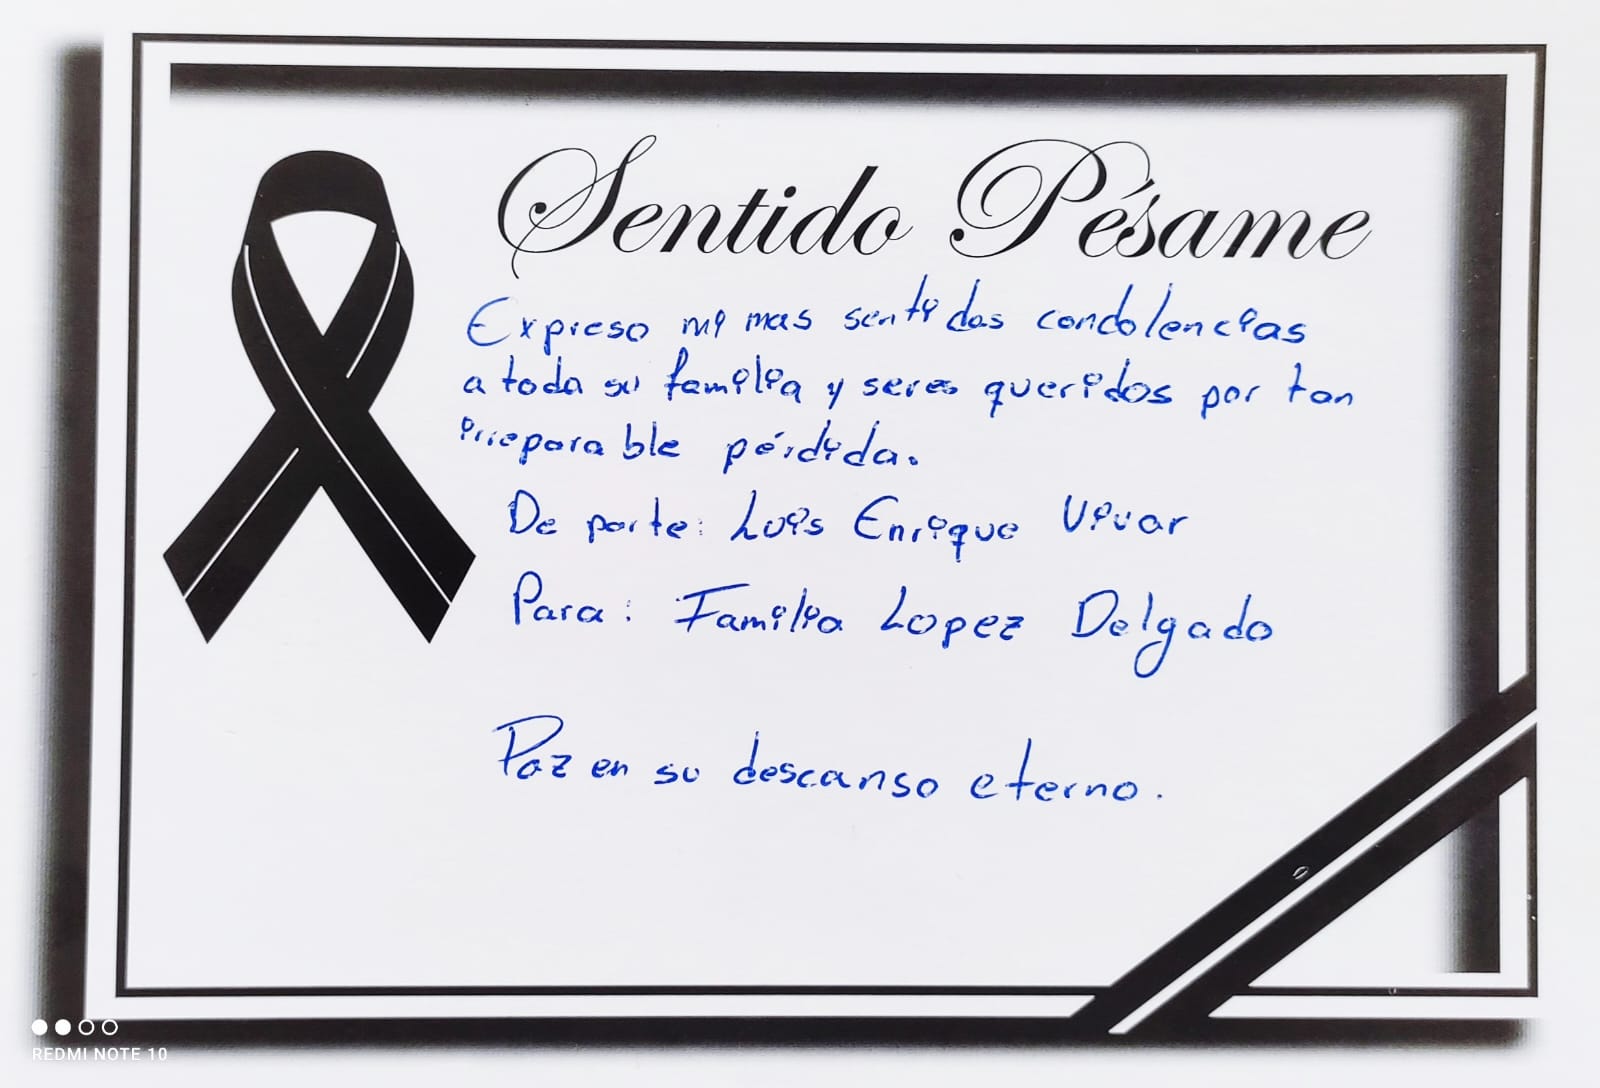 Sentido Pésame
Expreso mi mas sentidas condolencias
a toda su familia y seres queridos por tan
irreparable pérdida.
De parte: Luis Enrique Vivar
Para: Familia Lopez Delgado
Paz en su descanso eterno.
REDMI NOTE 10